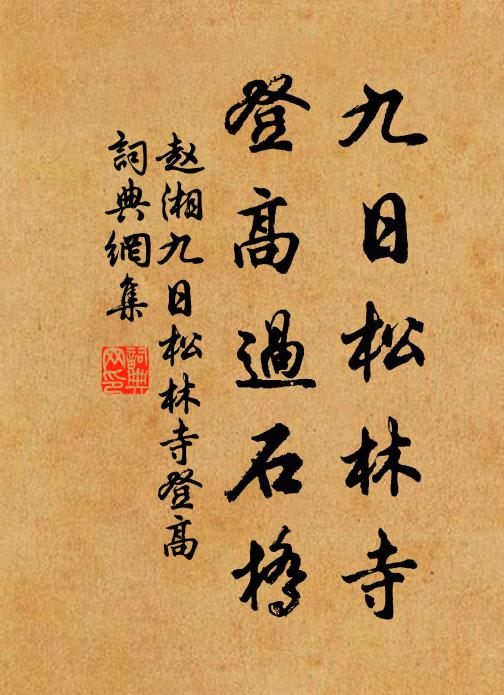 九日松林寺
登高過石橋
赵湘九日松林寺登高
詞典網集
詞典网印